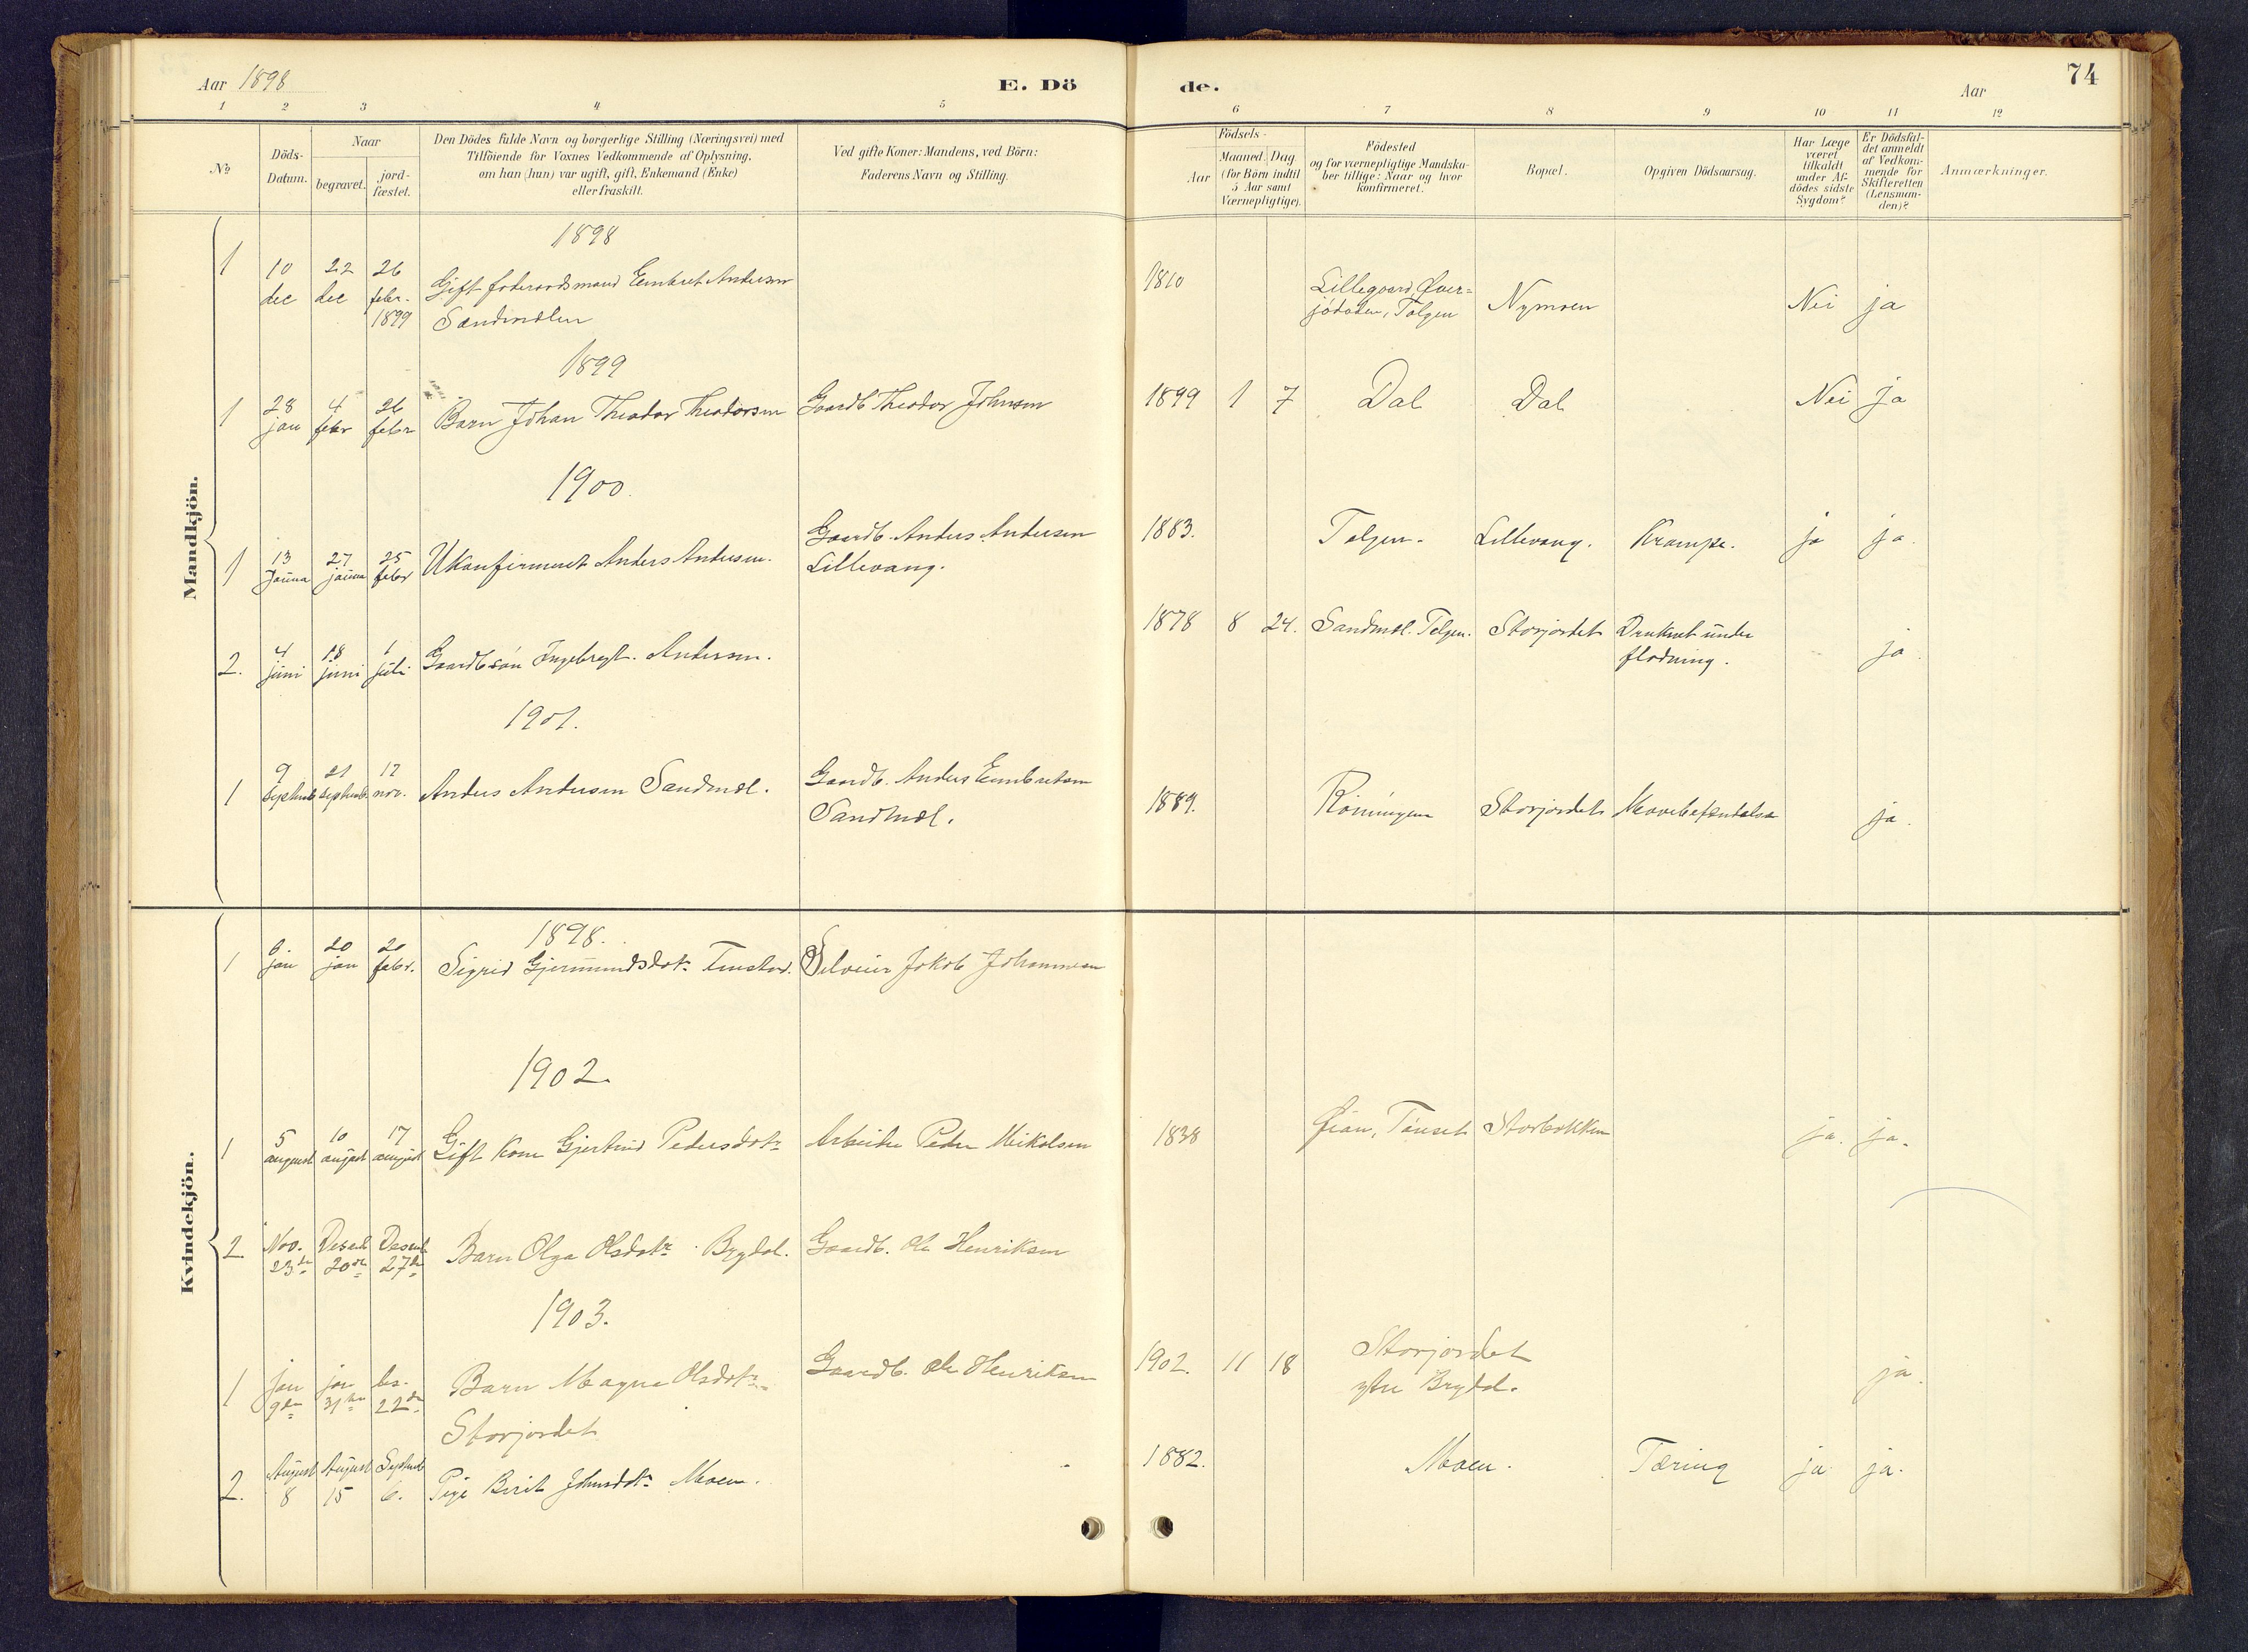 Aar 1898
E. Dö
de.
Aar
74
1 2 3 4 5 6 7 8 9 10 11 12
No
Döds-
Datum.
Naar
begravet.
jord-
fæstet.
Den Dödes fulde Navn og borgerlige Stilling (Næringsvei) med
Tilföiende for Voxnes Vedkommende af Oplysning,
om han (hun) var ugift, gift, Enkemand (Enke)
eller fraskilt.
Ved gifte Koner: Mandens, ved Börn:
Faderens Navn og Stilling.
Födsels-
Aar
Maaned.
Dag
(for Börn indtil
5 Aar samt
Værnepligtige).
Födested
og for værnepligtige Mandska-
ber tillige: Naar og hvor
konfirmeret.
Bopæl.
Opgiven Dödsaarsag.
Har Læge
været
tilkaldt
under Af-
dödes sidste
Sygdom?
Er Dödsfal-
det anmeldt
af Vedkom-
mende for
Skifteretten
(Lensman-
den)?
Anmærkninger.
Mandkjön.
1898
1 10 22 26 Gift Embret Andersen 1810 Lillegaard, Øver-
dec dec febr. Tolgen Nymoen Nei ja
1899 Sandmælen
1899
1 28 4 26 Barn Johan Theodor Theodorsen Gaardb Theodor Johnsen 1899 1 7 Dal Dal Nei ja
jan febr febr
1900.
1 13 27 25 Ukonfirmeret Anders Andersen. Gaardb. Anders Andersen 1883. Tolgen. Lillevang. Krampe. ja ja.
Janua janua febr Lillevang.
2. 4 18 1 Gaardbsön Ingebregt. Andersen. 1878 8 24. Sandmæl. Tolgen. Storjordet Druknet under ja.
juni juni juli flødning.
1901.
1 9 21 17 Anders Andersen Sandmæl. Gaardb. Anders Embretsen 1889. Röningen Storjordet Mavebetændelse ja.
Septemb septemb. nov. Sandmæl.
Kvindekjön.
1898.
1 6. 20 20 Sigrid Gjermundsdotr Selveier Jakob Johannesen
jan jan febr.
1902.
1 5 10 17 Gift Kone Gjertrud Pedersdotr Arbeider Peder Mikalsen 1838 Øian, Tönset Storbekken ja. ja.
august august august
2 Nov. Desemb Desemb Barn Olga Olsdotr Brydal. Gaardb. Ole Henriksen
23de 20de 27de
1903.
1 jan jan Barn Magna Olsdotr Gaardb. Ole Henriksen 1902. 11 18 Storjordet ja.
9de 31te 22de Storjordet ytre Brydal.
2. August August Septemb Pige Berit Johnsdotr Moen. 1882. Moen. Tæring ja ja.
8 15 6.